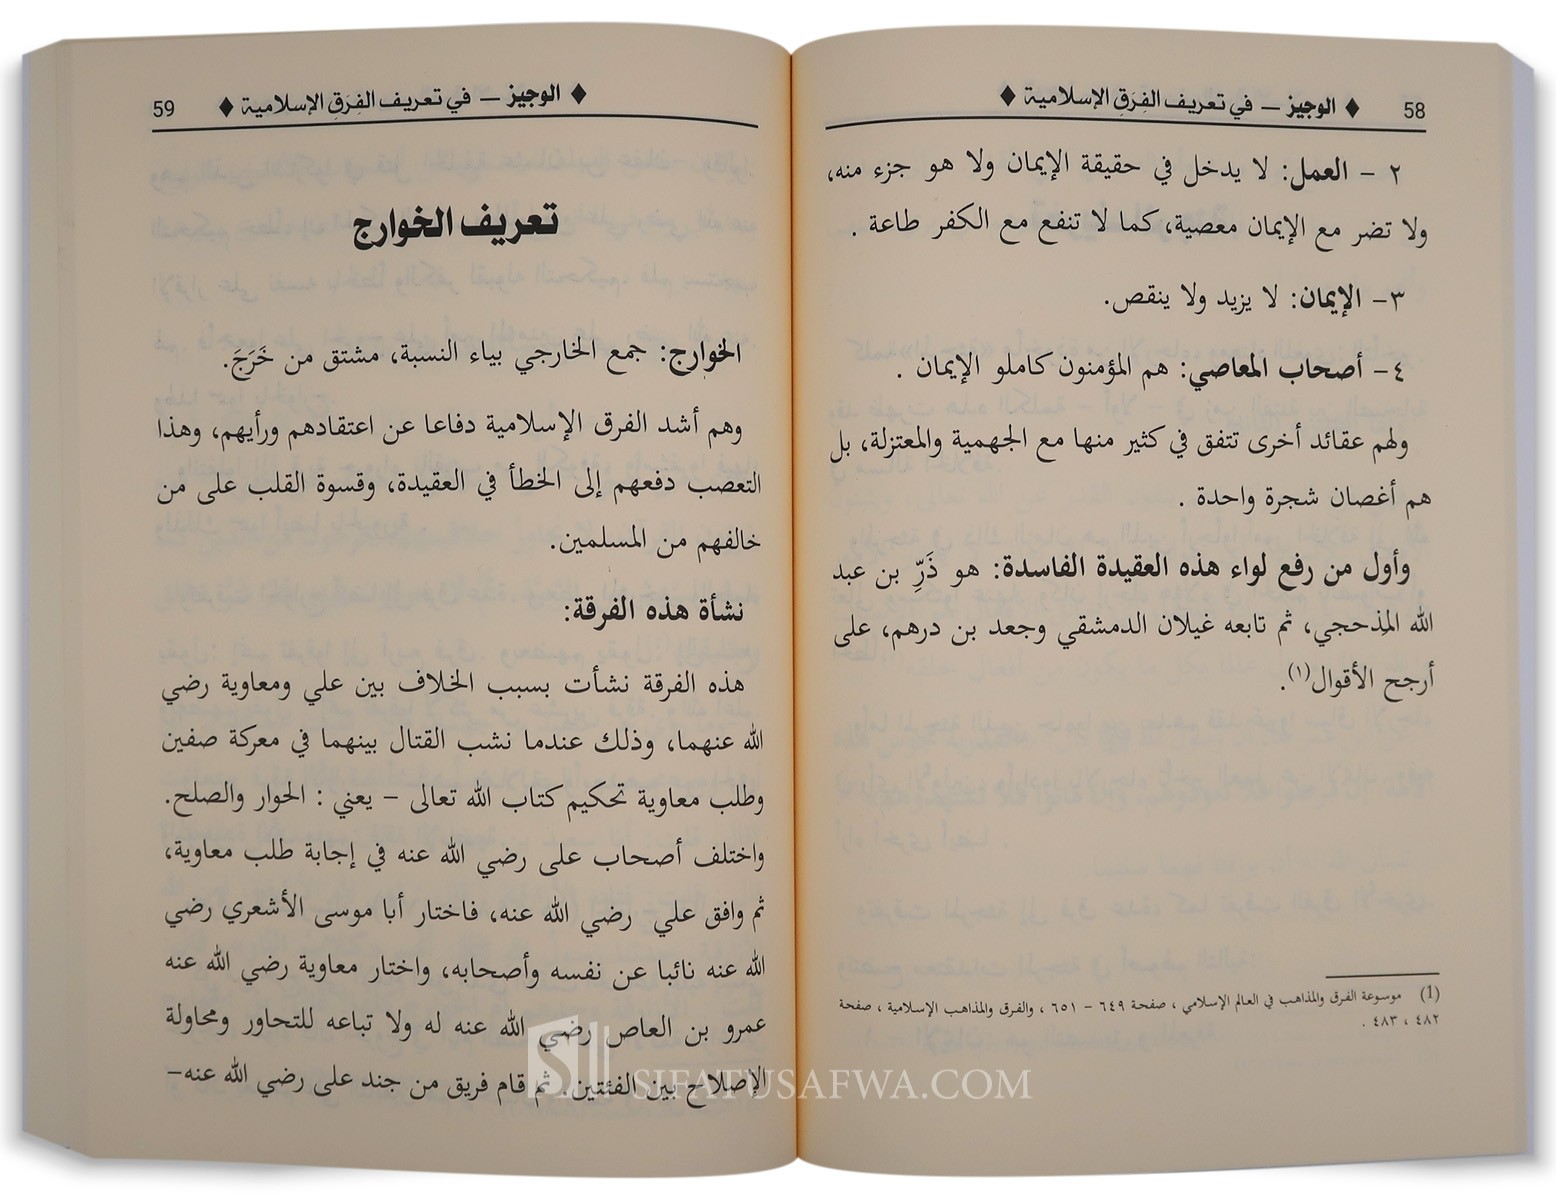 58 ♦ الوجيز – في تعريف الفِرَقِ الإسلامية ♦
٢ – العمل: لا يدخل في حقيقة الإيمان ولا هو جزء منه،
ولا تضر مع الإيمان معصية، كما لا تنفع مع الكفر طاعة .
٣- الإيمان: لا يزيد ولا ينقص.
٤- أصحاب المعاصي: هم المؤمنون كاملو الإيمان .
ولهم عقائد أخرى تتفق في كثير منها مع الجهمية والمعتزلة، بل
هم أغصان شجرة واحدة .
وأول من رفع لواء هذه العقيدة الفاسدة: هو ذَرِّ بن عبد
الله المِذحجي، ثم تابعه غيلان الدمشقي وجعد بن درهم، على
أرجح الأقوال(١).
(1) موسوعة الفرق والمذاهب في العالم الإسلامي ، صفحة ٦٤٩ – ٦٥١ ، والفرق والمذاهب الإسلامية ، صفحة
٤٨٢ ، ٤٨٣ .
♦ الوجيز – في تعريف الفِرَقِ الإسلامية ♦ 59
تعريف الخوارج
الخوارج: جمع الخارجي بياء النسبة، مشتق من خَرَجَ.
وهم أشد الفرق الإسلامية دفاعا عن اعتقادهم ورأيهم، وهذا
التعصب دفعهم إلى الخطأ في العقيدة، وقسوة القلب على من
خالفهم من المسلمين.
نشأة هذه الفرقة:
هذه الفرقة نشأت بسبب الخلاف بين علي ومعاوية رضي
الله عنهما، وذلك عندما نشب القتال بينهما في معركة صفين
وطلب معاوية تحكيم كتاب الله تعالى – يعني : الحوار والصلح.
واختلف أصحاب على رضي الله عنه في إجابة طلب معاوية،
ثم وافق علي رضي الله عنه، فاختار أبا موسى الأشعري رضي
الله عنه نائبا عن نفسه وأصحابه، واختار معاوية رضي الله عنه
عمرو بن العاص رضي الله عنه له ولا تباعه للتحاور ومحاولة
الإصلاح بين الفئتين. ثم قام فريق من جند على رضي الله عنه–
SIFATUSAFWA.COM